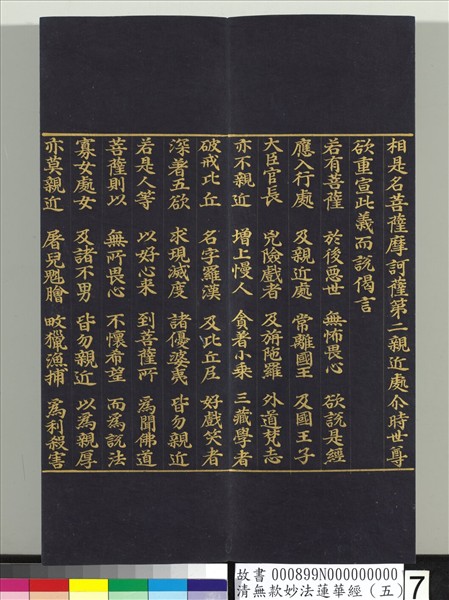 相是名菩薩摩訶薩第二親近處介時世尊
欲重宣此義而說偈言
若有菩薩 於後惡世 無怖畏心 欲說是經
應入行處 及親近處 常離國王 及國王子
大臣官長 兇險戲者 及旃陁羅 外道梵志
亦不親近 增上慢人 貪著小乘 三藏學者
破戒比丘 名字羅漢 及比丘尼 好戲笑者
深著五欲 求現滅度 諸優婆夷 皆勿親近
若是人等 以好心來 到菩薩所 為聞佛道
菩薩則以 無所畏心 不懷希望 而為說法
寡女處女 及諸不男 皆勿親近 以為親厚
亦莫親近 屠兒魁膾 畋獵漁捕 為利殺害
故書 000899N000000000
清無款妙法蓮華經（五）
7